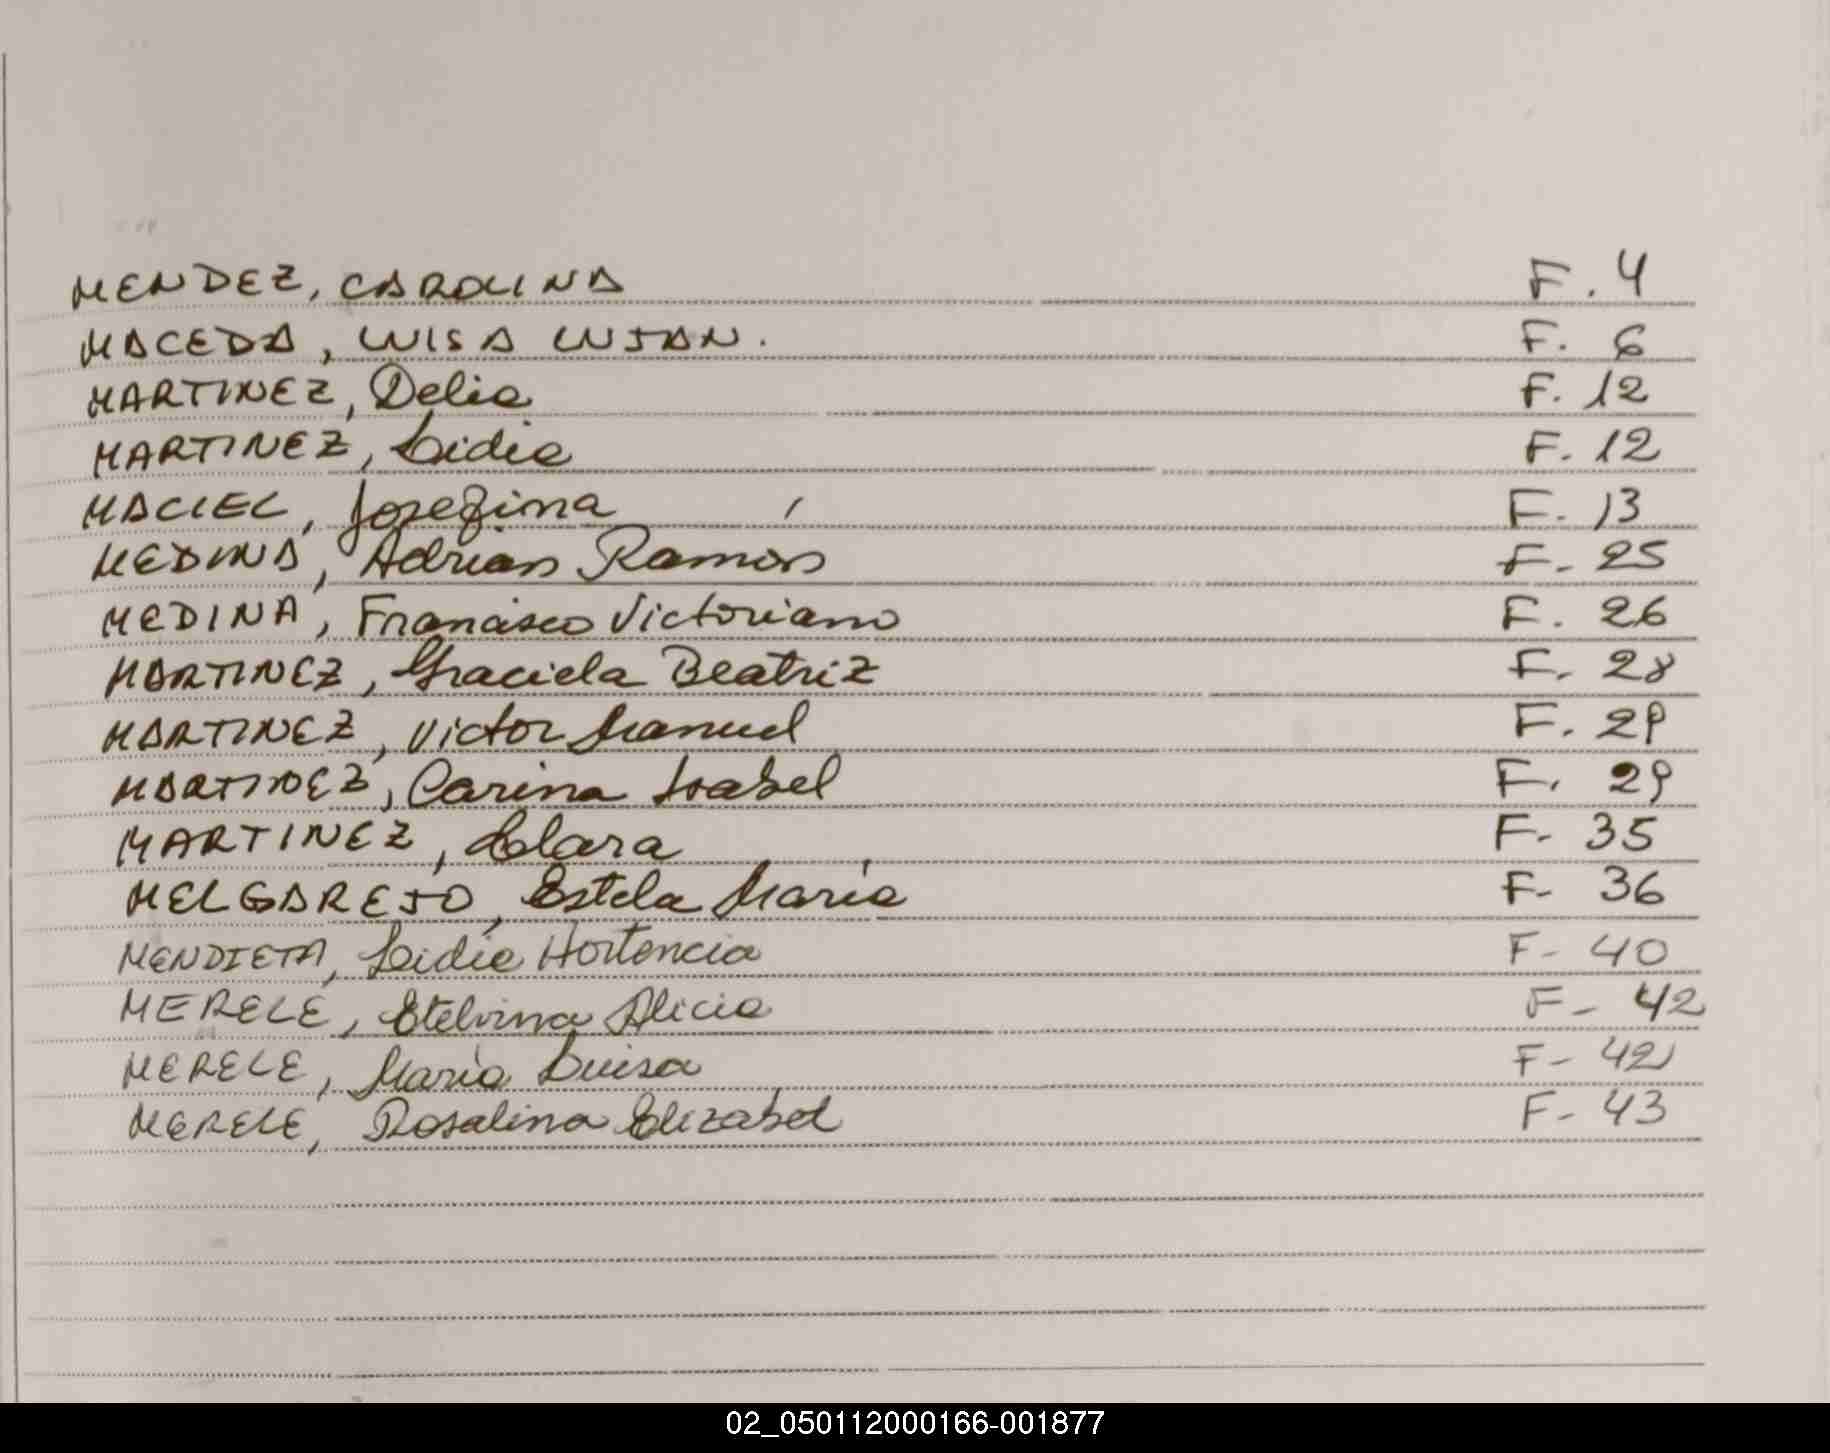 MENDEZ, CAROLINA F. 4
MACEDA, LUISA LUJAN. F. 6
MARTINEZ, Delia F. 12
MARTINEZ, Lidia F. 12
MACIEL, Josefina F. 13
MEDINA, Adrian Ramon F. 25
MEDINA, Francisco Victoriano F. 26
MARTINEZ, Graciela Beatriz F. 28
MARTINEZ, Victor Manuel F. 29
MARTINEZ, Carina Isabel F. 29
MARTINEZ, Clara F- 35
MELGAREJO, Estela María F- 36
MENDIETA, Lidia Hortencia F- 40
MERELE, Etelvina Alicia F- 42
MERELE, María Luisa F- 42
MERELE, Rosalina Elizabet F- 43
02_050112000166-001877